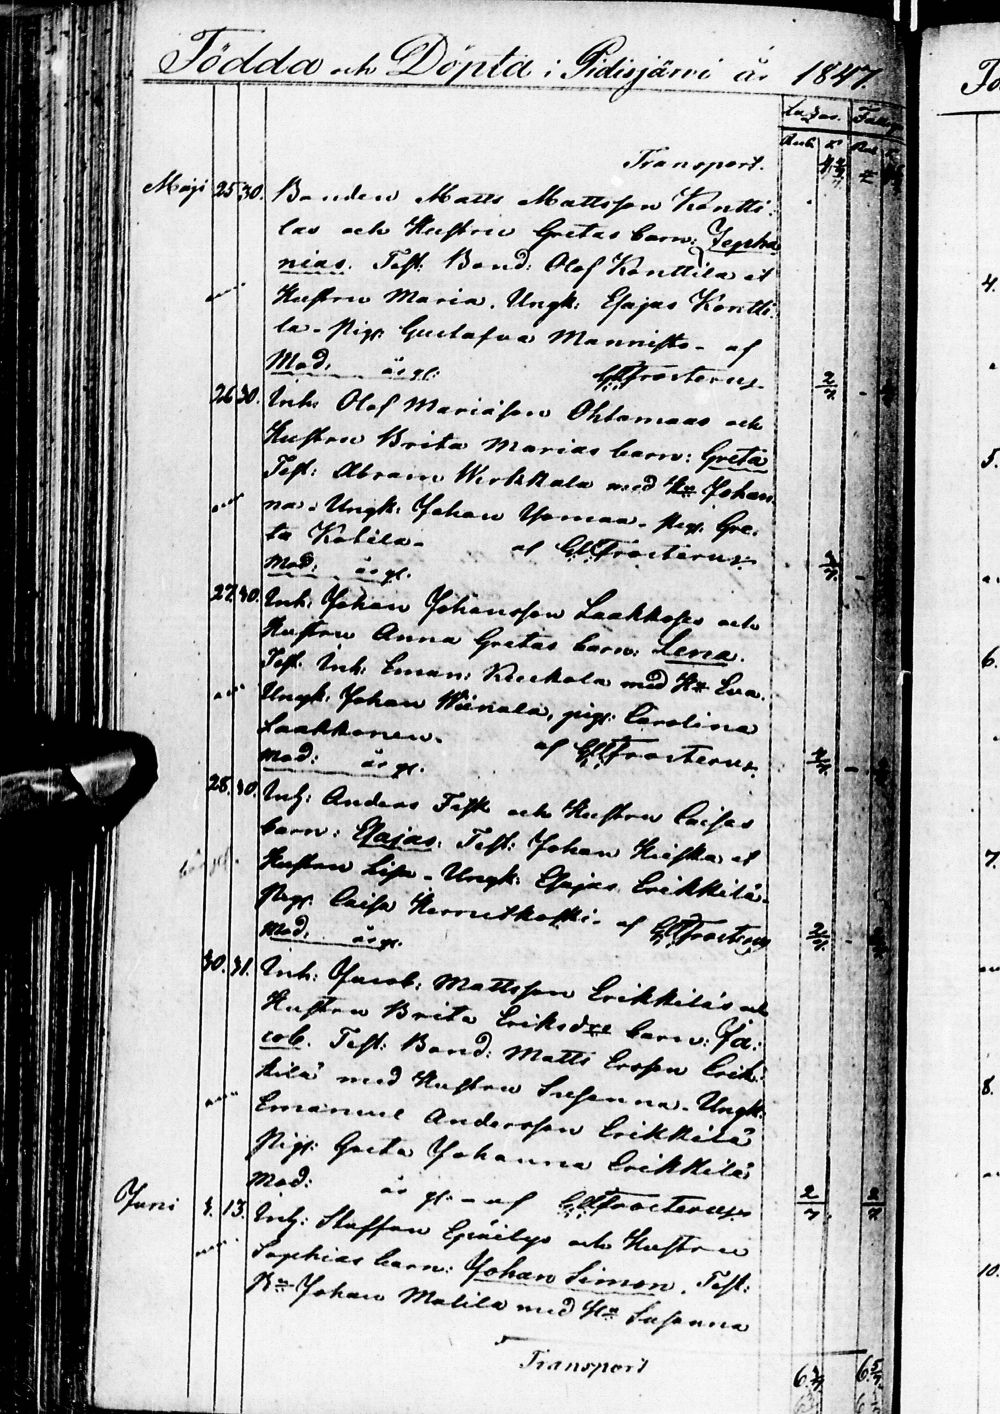 Födda och Döpta i Pidisjärvi år 1847.
Transport.
Maji 25 30. Bonden Matts Mattsson Kontti-
las och Hustru Gretas barn: Zepha
nias. Test: Bond: Olof Konttila et
Hustru Maria. Ungk: Esajas Kontti-
la. Pig: Gustafva Mannisto - af
Mod. år gl. Frosterus
26 30. Inh: Olof Mariáson Ohtamaas och
Hustru Brita Marias barn: Greta
Test: Abram Werkkala med Hu Johan
na. Ungk: Johan Ypmaa. Pig: Gre-
ta Kotila. af Frosterus
Mod. år gl.
27. 30. Inh: Johan Johansson Laakkoses och
Hustru Anna Gretas barn: Lena.
Test. Inh: Eman: Kuckola med Hu Eva.
Ungk: Johan Wiirkala, pig: Carolina
Laakkonen. af Frosterus
Mod: år gl.
28. 30. Inh: Anders Fisk och Hustru Caisas
barn: Esajas. Test: Johan Kieska et
Hustru Lisa. Ungk: Esajas Erikkilä
Pig: Caisa af Frosterus
Mod. år gl.
30. 31. Inh: Jacob Mattsson Erikkiläs och
Hustru Brita Eriksdr barn: Ja-
cob. Test: Bond: Matti Ersson Erik-
kilä med Hustru Susanna. Ungk:
Emanuel Andersson Erikkilä
Pig: Greta Johanna Erikkilä
Mod: år gl. - af Frosterus
Juni 13. Inh: Staffan och Hustru
Sophias barn: Johan Simon. Test:
Johan Malila med Hu Susanna
Transport